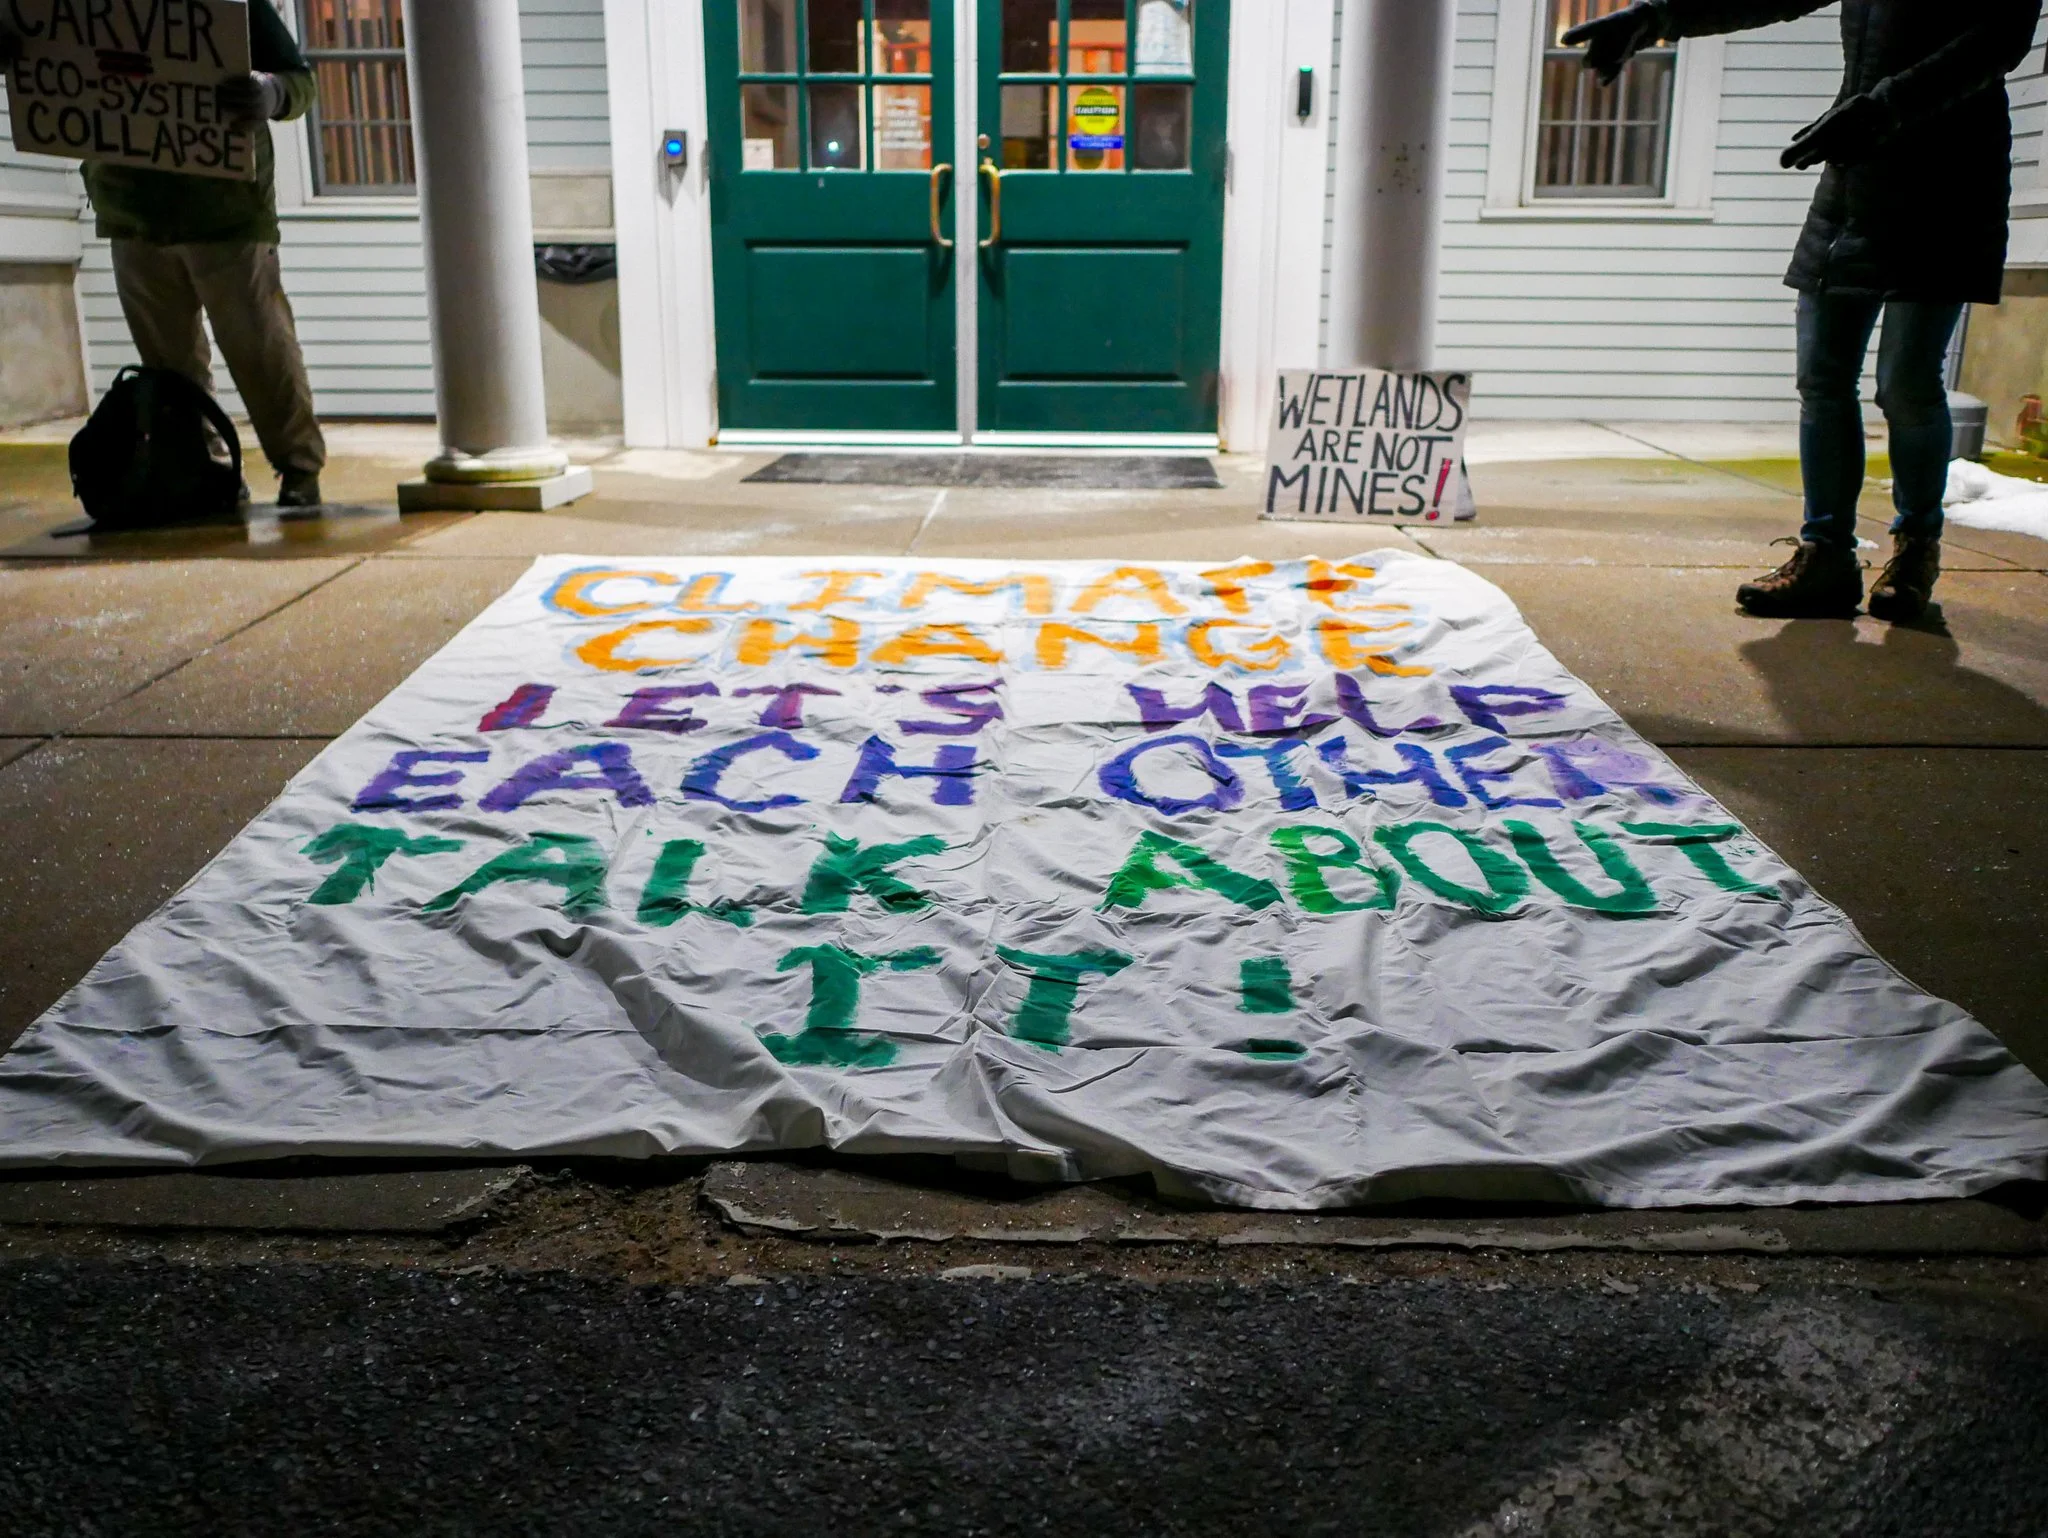 CARVER
ECO-SYSTEM
COLLAPSE
CAUTION
WETLANDS
ARE NOT
MINES!
CLIMATE
CHANGE
LET'S HELP
EACH OTHER
TALK ABOUT
IT!